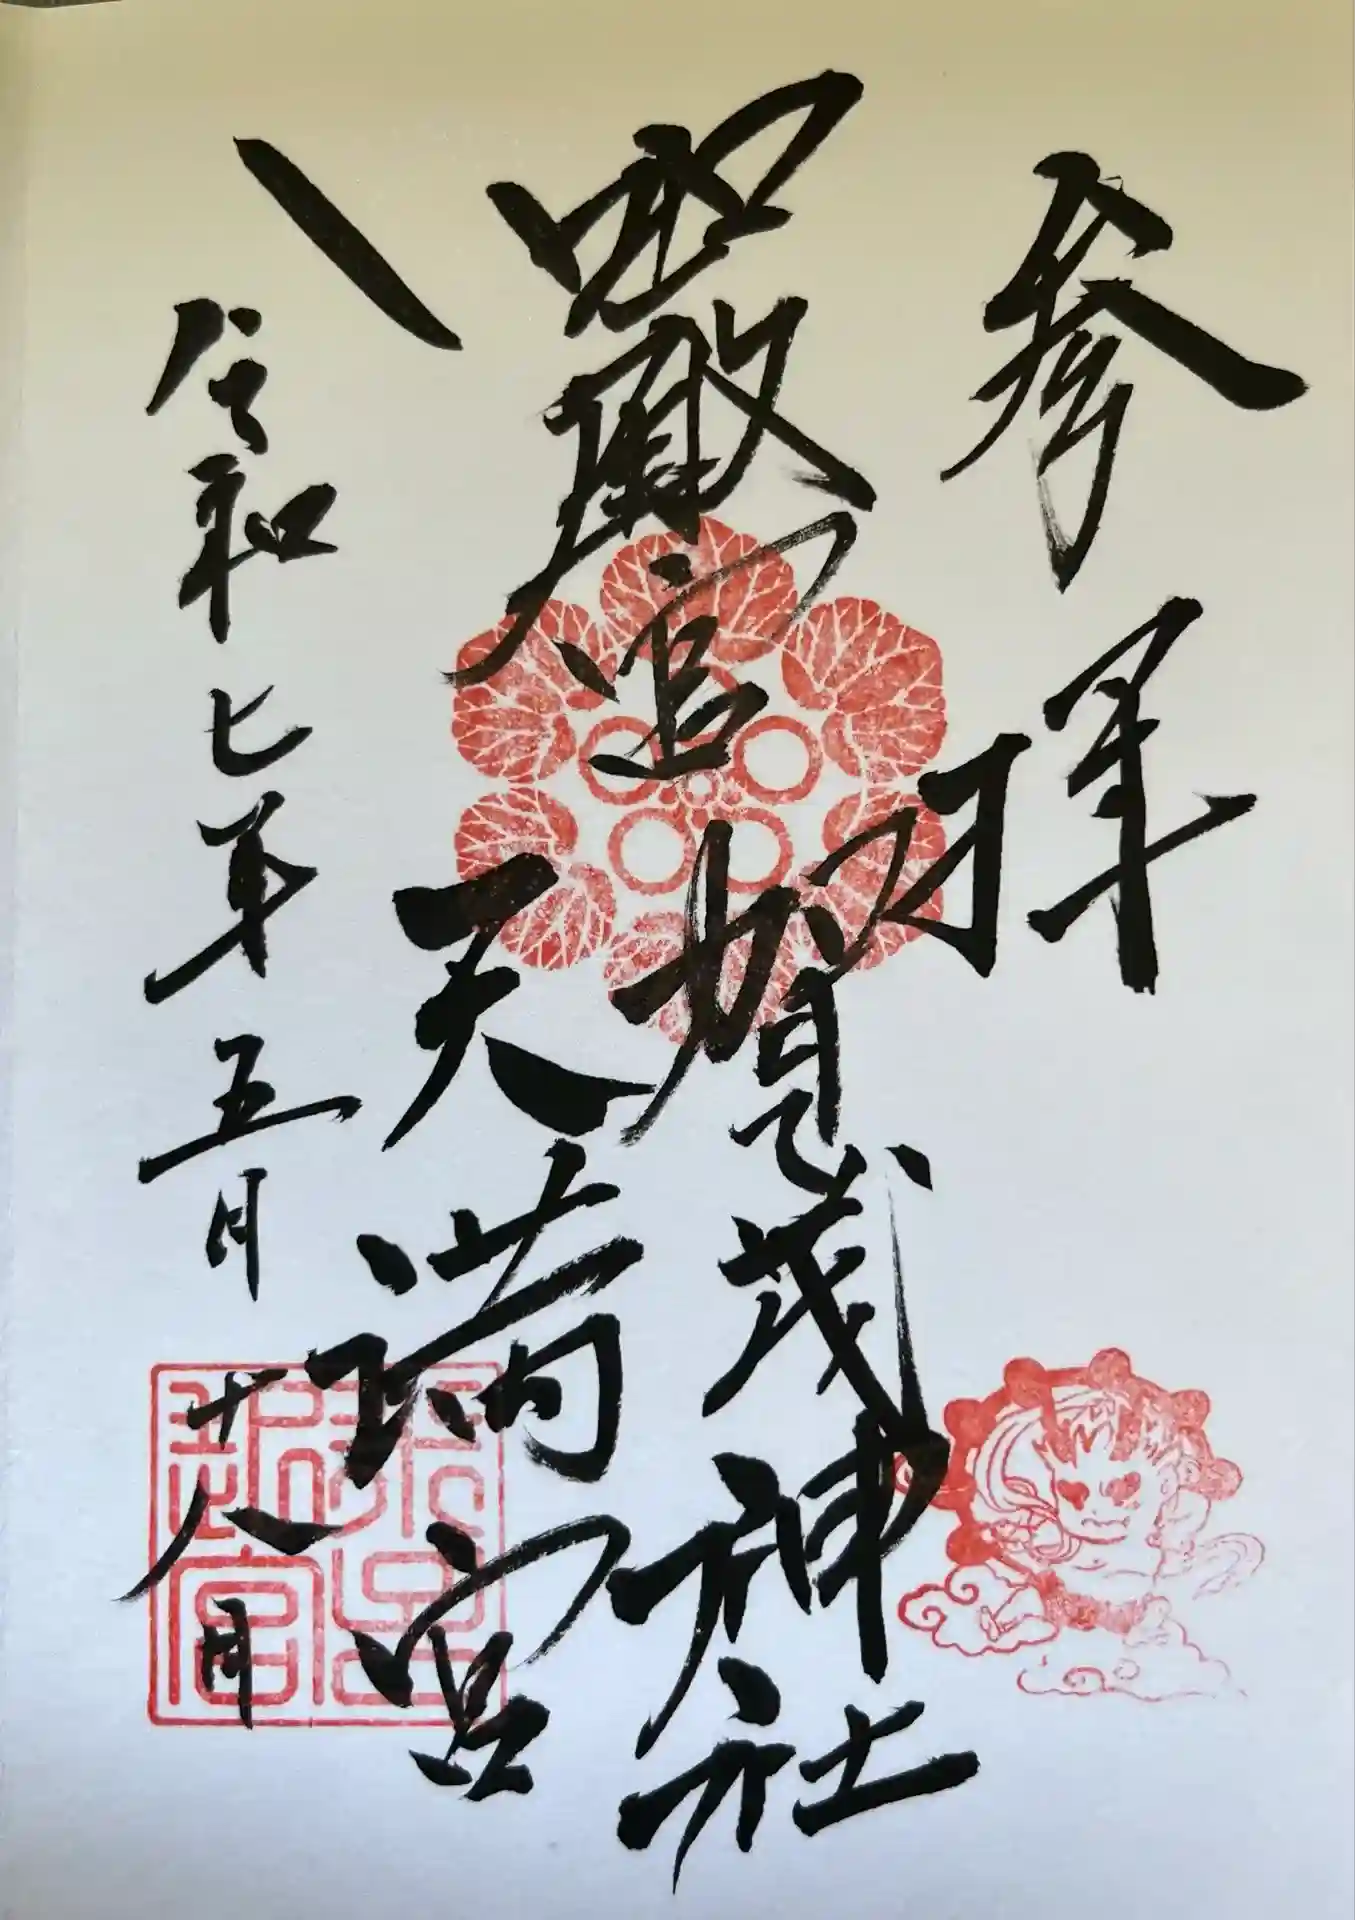 参拝
嚴官賀茂神社
天満宮
令和七年五月十八日